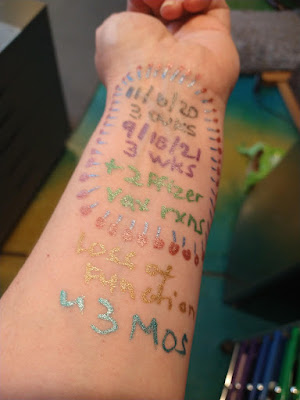 11/8/20
3 wks
9/18/21
3 wks
+ 2 Pfizer
vax rxns
Loss of
Function
43 MOS